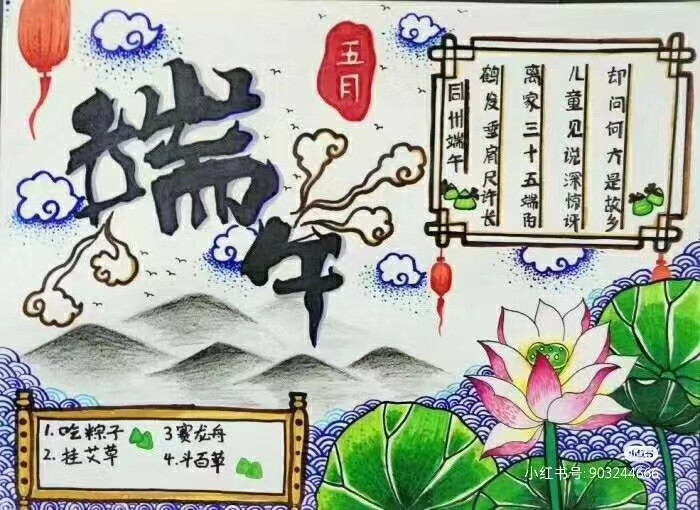 五月
端午
同州端午
鹤发垂肩尺许长
离家三十五端阳
儿童见说深惊讶
却问何方是故乡
1.吃粽子
2.挂艾草
3赛龙舟
4.斗百草
小红书
小红书号: 903244666